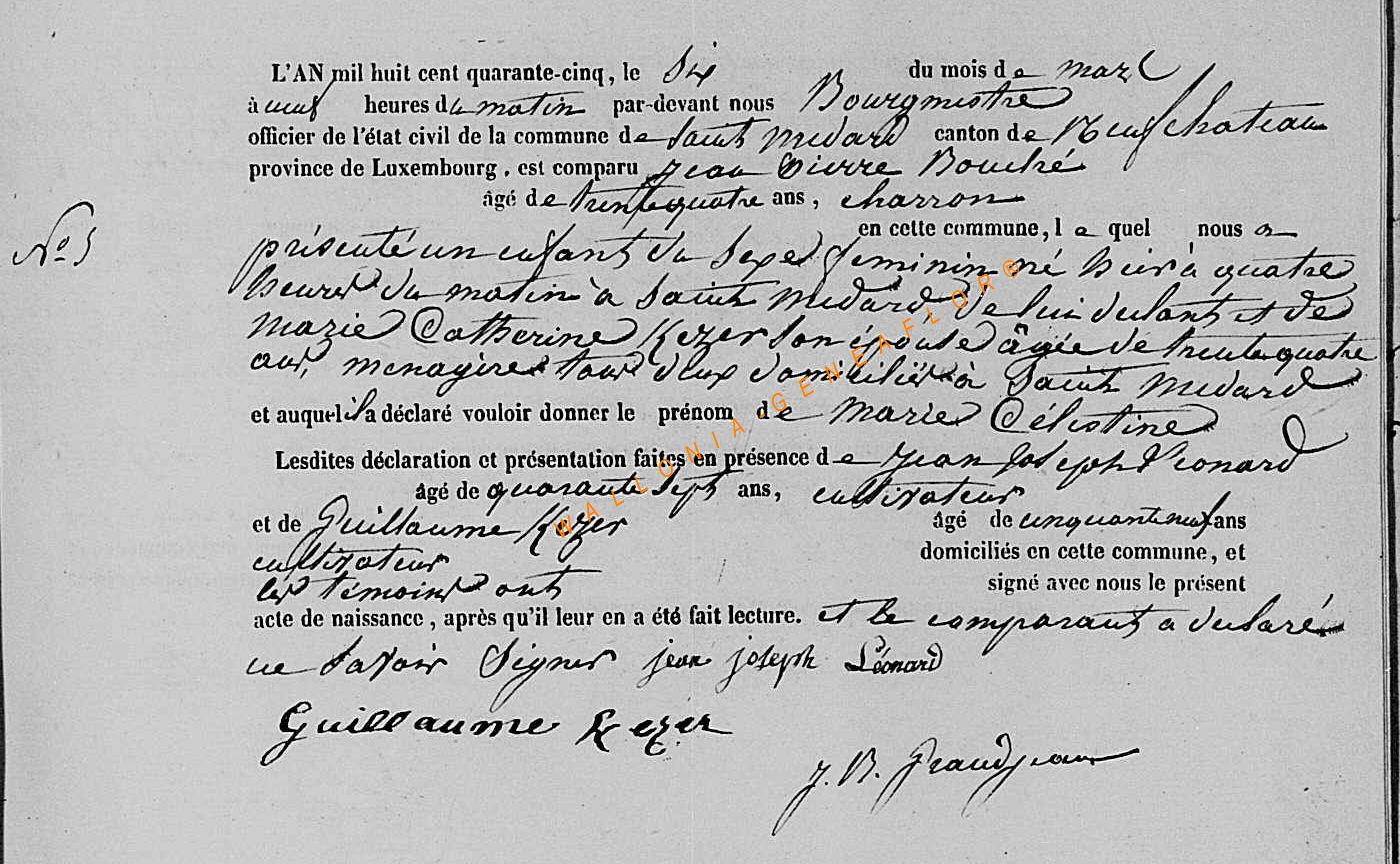 L'AN mil huit cent quarante-cinq, le Six du mois de mars
à neuf heures du matin par-devant nous Bourgmestre
officier de l'état civil de la commune de Saint Medard canton de Neufchateau
province de Luxembourg, est comparu Jean Pierre Bouché
âgé de trente quatre ans, charron
en cette commune, lequel nous a
No 5
présenté un enfant du Sexe feminin né hier à quatre
heures du matin à Saint Medard, de lui déclarant et de
Marie Catherine Kezer son épouse âgée de trente quatre
ans, menagère tous deux domiciliés à Saint Medard
et auquel il a déclaré vouloir donner le prénom de Marie Célestine
Lesdites déclaration et présentation faites en présence de Jean Joseph Léonard
âgé de quarante Sept ans, cultivateur
et de Guillaume Kezer âgé de cinquante neuf ans
cultivateur domiciliés en cette commune, et
les témoins ont signé avec nous le présent
acte de naissance, après qu'il leur en a été fait lecture. et le comparant a déclaré
ne Savoir Signer jean joseph Léonard
Guillaume Kezer
J. B. Grandjean
WALLONIA.GENEAFLOR©